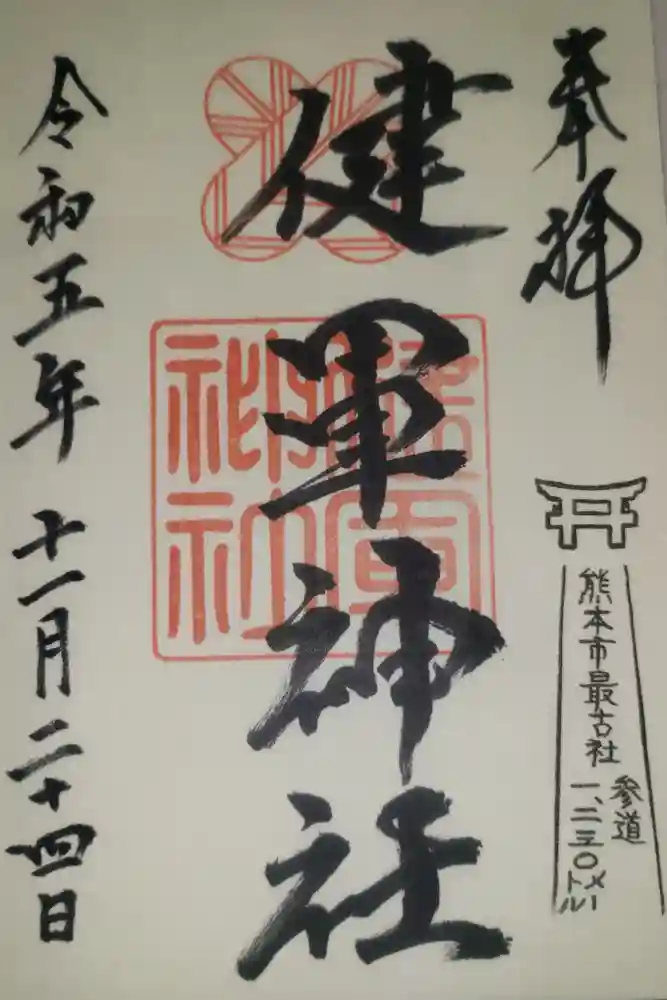 奉拝
熊本市最古社
参道
一、二三〇メートル
健軍神社
健軍神社
令和五年十一月二十四日